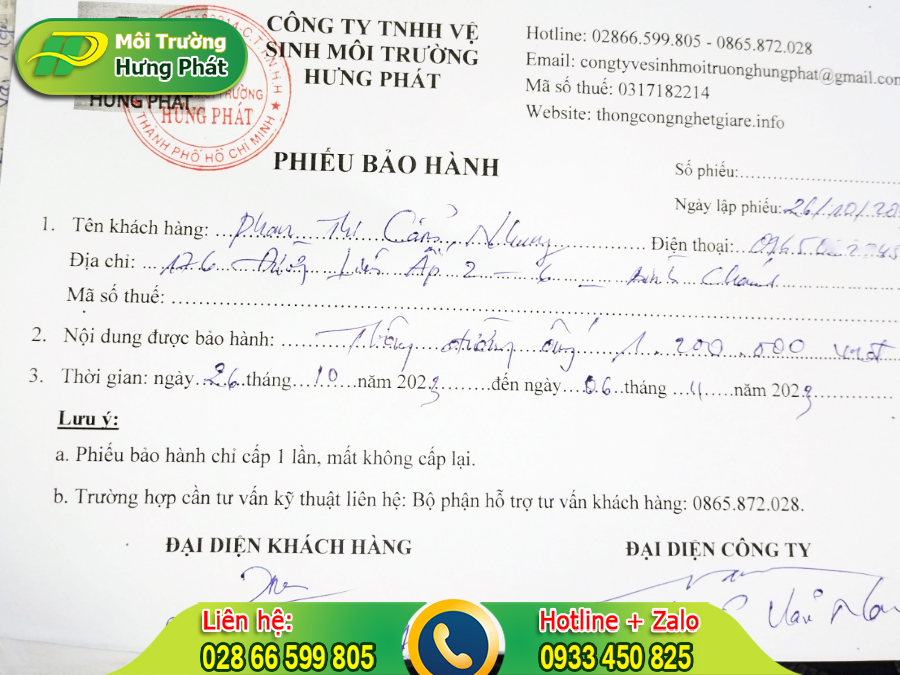 Môi Trường
Hưng Phát
HƯNG PHÁT
HƯNG PHÁT
THÀNH PHỐ HỒ CHÍ MINH
CÔNG TY TNHH VỆ
SINH MÔI TRƯỜNG
HƯNG PHÁT
Hotline: 02866.599.805 - 0865.872.028
Email: congtyvesinhmoitruonghungphat@gmail.com
Mã số thuế: 0317182214
Website: thongcongnghetgiare.info
PHIẾU BẢO HÀNH
Số phiếu:
Ngày lập phiếu: 26/10/20
1. Tên khách hàng: Phan Thị Cẩm Nhung Điện thoại:
Địa chỉ: 176 Liên Ấp 2 - 6 - Chánh
Mã số thuế:
2. Nội dung được bảo hành: Thông đường ống 1.200.000
3. Thời gian: ngày 26 tháng 10 năm 2023 đến ngày 06 tháng 11 năm 2023
Lưu ý:
a. Phiếu bảo hành chỉ cấp 1 lần, mất không cấp lại.
b. Trường hợp cần tư vấn kỹ thuật liên hệ: Bộ phận hỗ trợ tư vấn khách hàng: 0865.872.028.
ĐẠI DIỆN KHÁCH HÀNG ĐẠI DIỆN CÔNG TY
Liên hệ: Hotline + Zalo
028 66 599 805 0933 450 825